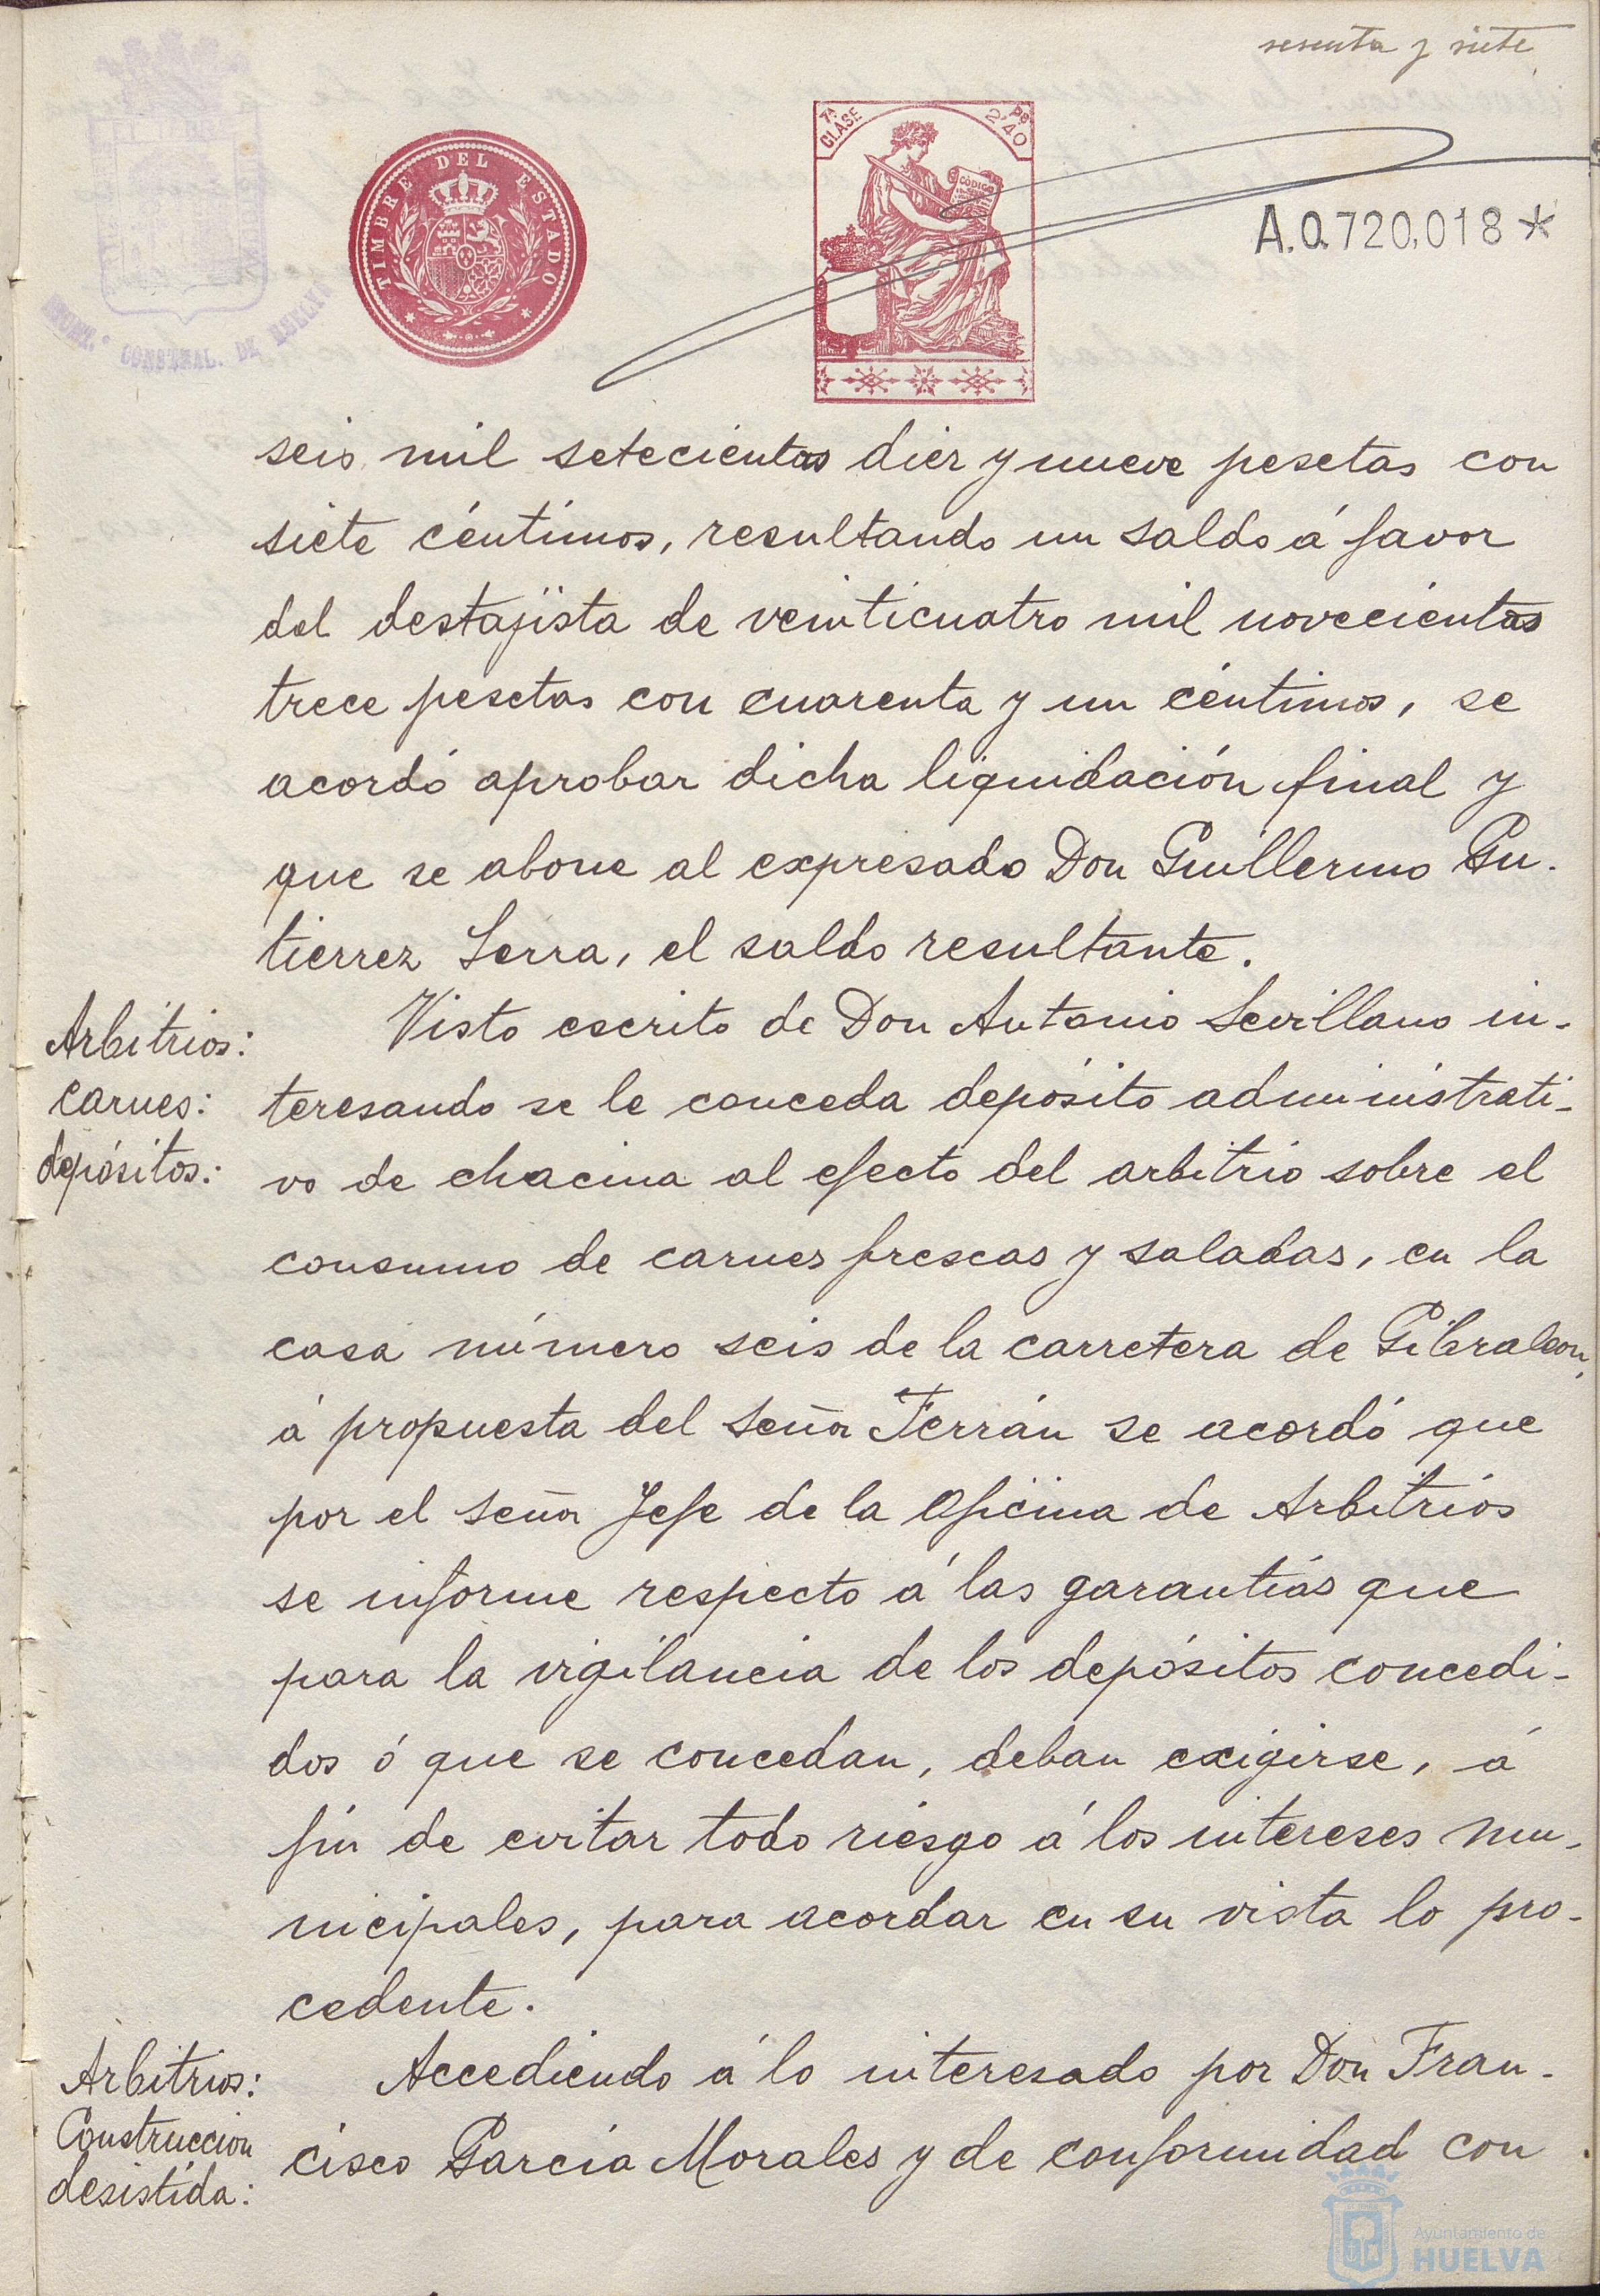 sesenta y siete
TIMBRE DEL ESTADO
7ª CLASE
Ps 2'40
CÓDIGO
A.0.720,018*
CONSTNAL. DE HUELVA
seis mil setecientas diez y nueve pesetas con
siete céntimos, resultando un saldo á favor
del destajista de veinticuatro mil novecientas
trece pesetas con cuarenta y un céntimos, se
acordó aprobar dicha liquidación final y
que se abone al expresado Don Guillermo Gu-
tierrez Serra, el saldo resultante.
Arbitrios:
carnes:
depósitos:
Visto escrito de Don Antonio Sevillano in-
teresando se le conceda depósito administrati-
vo de chacina al efecto del arbitrio sobre el
consumo de carnes frescas y saladas, en la
casa número seis de la carretera de Gibraleon,
á propuesta del señor Terrán se acordó que
por el señor Jefe de la Oficina de Arbitrios
se informe respecto á las garantías que
para la vigilancia de los depósitos concedi-
dos ó que se concedan, deban exigirse, á
fin de evitar todo riesgo á los intereses mu-
nicipales, para acordar en su vista lo pro-
cedente.
Arbitrios:
Construccion
desistida:
Accediendo á lo interesado por Don Fran-
cisco García Morales y de conformidad con
Ayuntamiento de
HUELVA